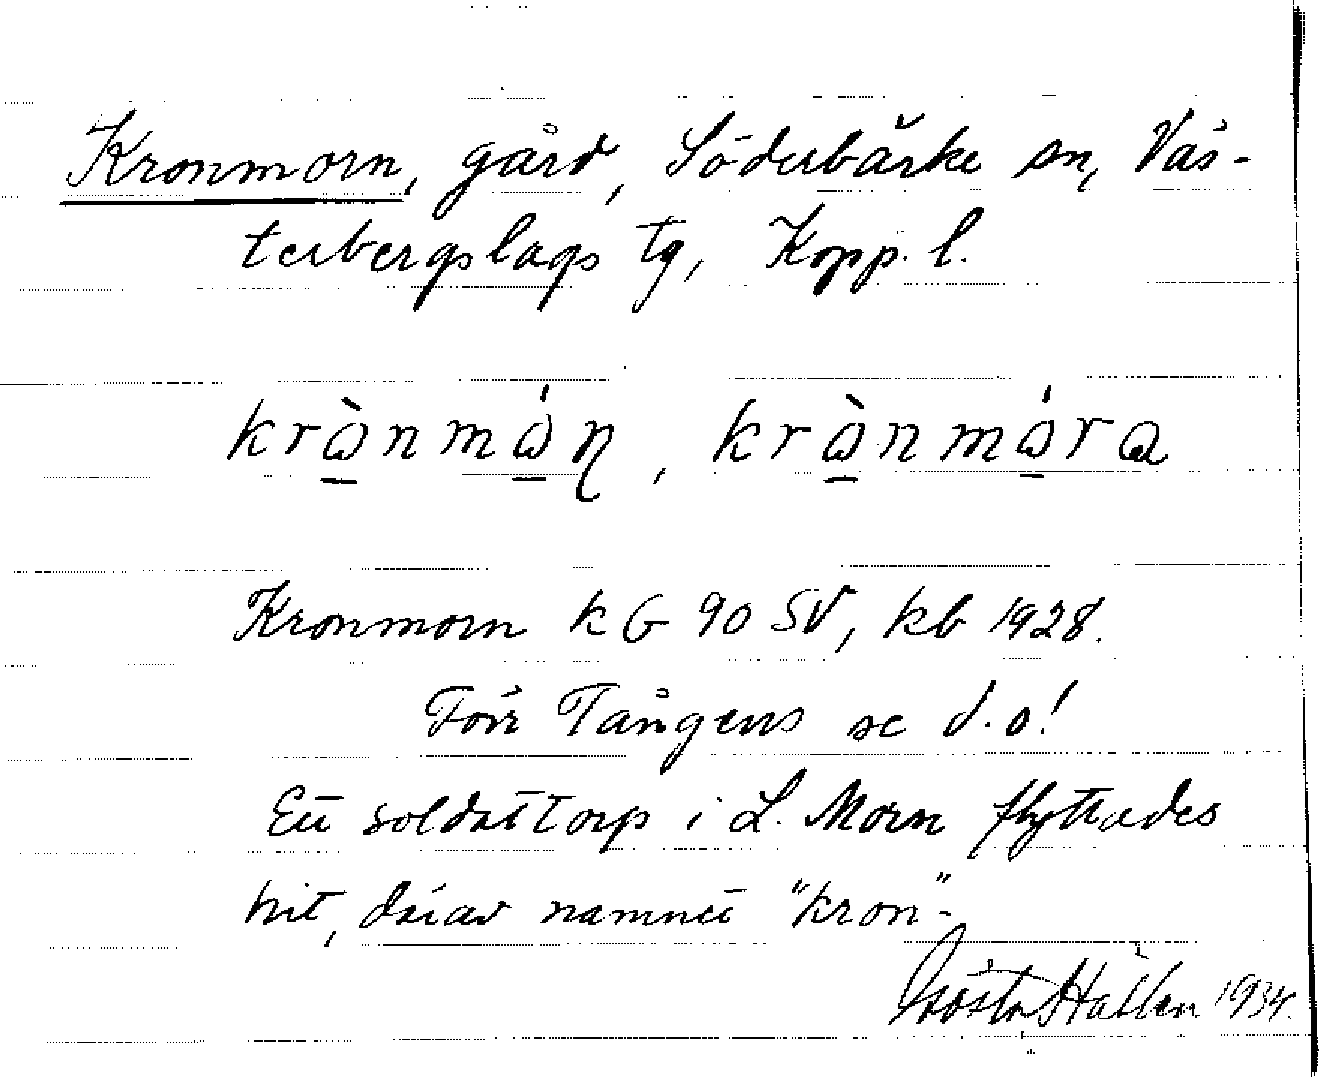 Kronmorn, gård, Söderbärke sn, Väs-
terbergslags tg, Kopp. l.
krὼ̱nmώ̱ɳ, krὼ̱nmώ̱ra
Kronmorn k G 90 SV, kb 1928.
Förr Tångens se d.o!
Ett soldattorp i L. Morn flyttades
hit, därav namnet "kron"-
Gösta Hallen 1934.